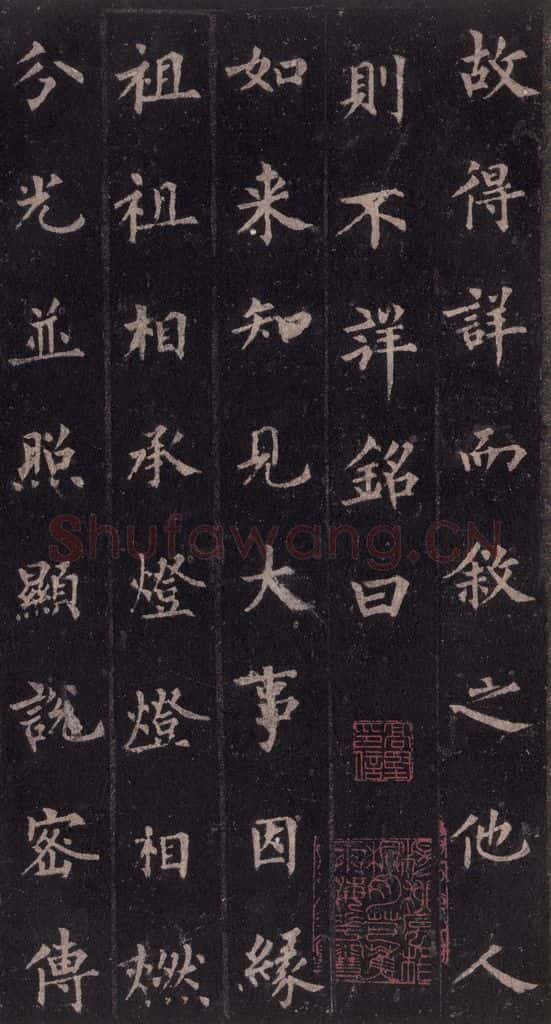 故得詳而敘之他人
則不詳銘曰
如来知見大事因緣
祖祖相承燈燈相燃
分光並照顯說密傳
Shufawang.CN